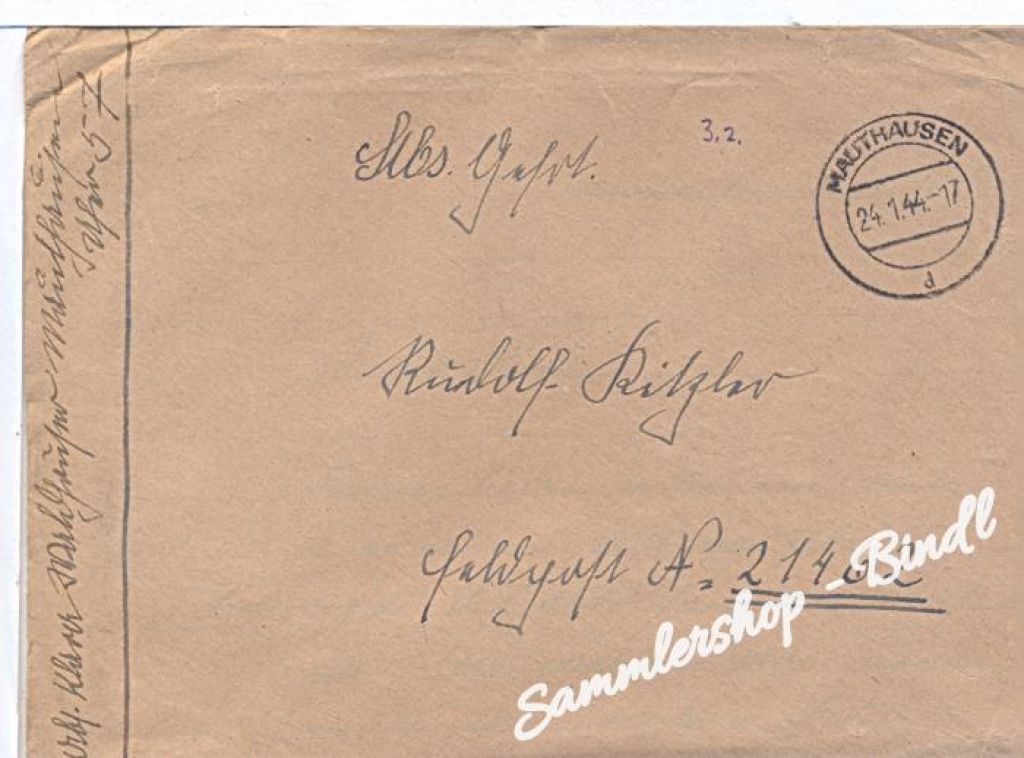 Gefrt.
3.2.
MAUTHAUSEN
24.1.44.-17
d
Rudolf Kitzler
Feldpost N= 214
Sammlershop - Bindl
Klara Mauthausen
57